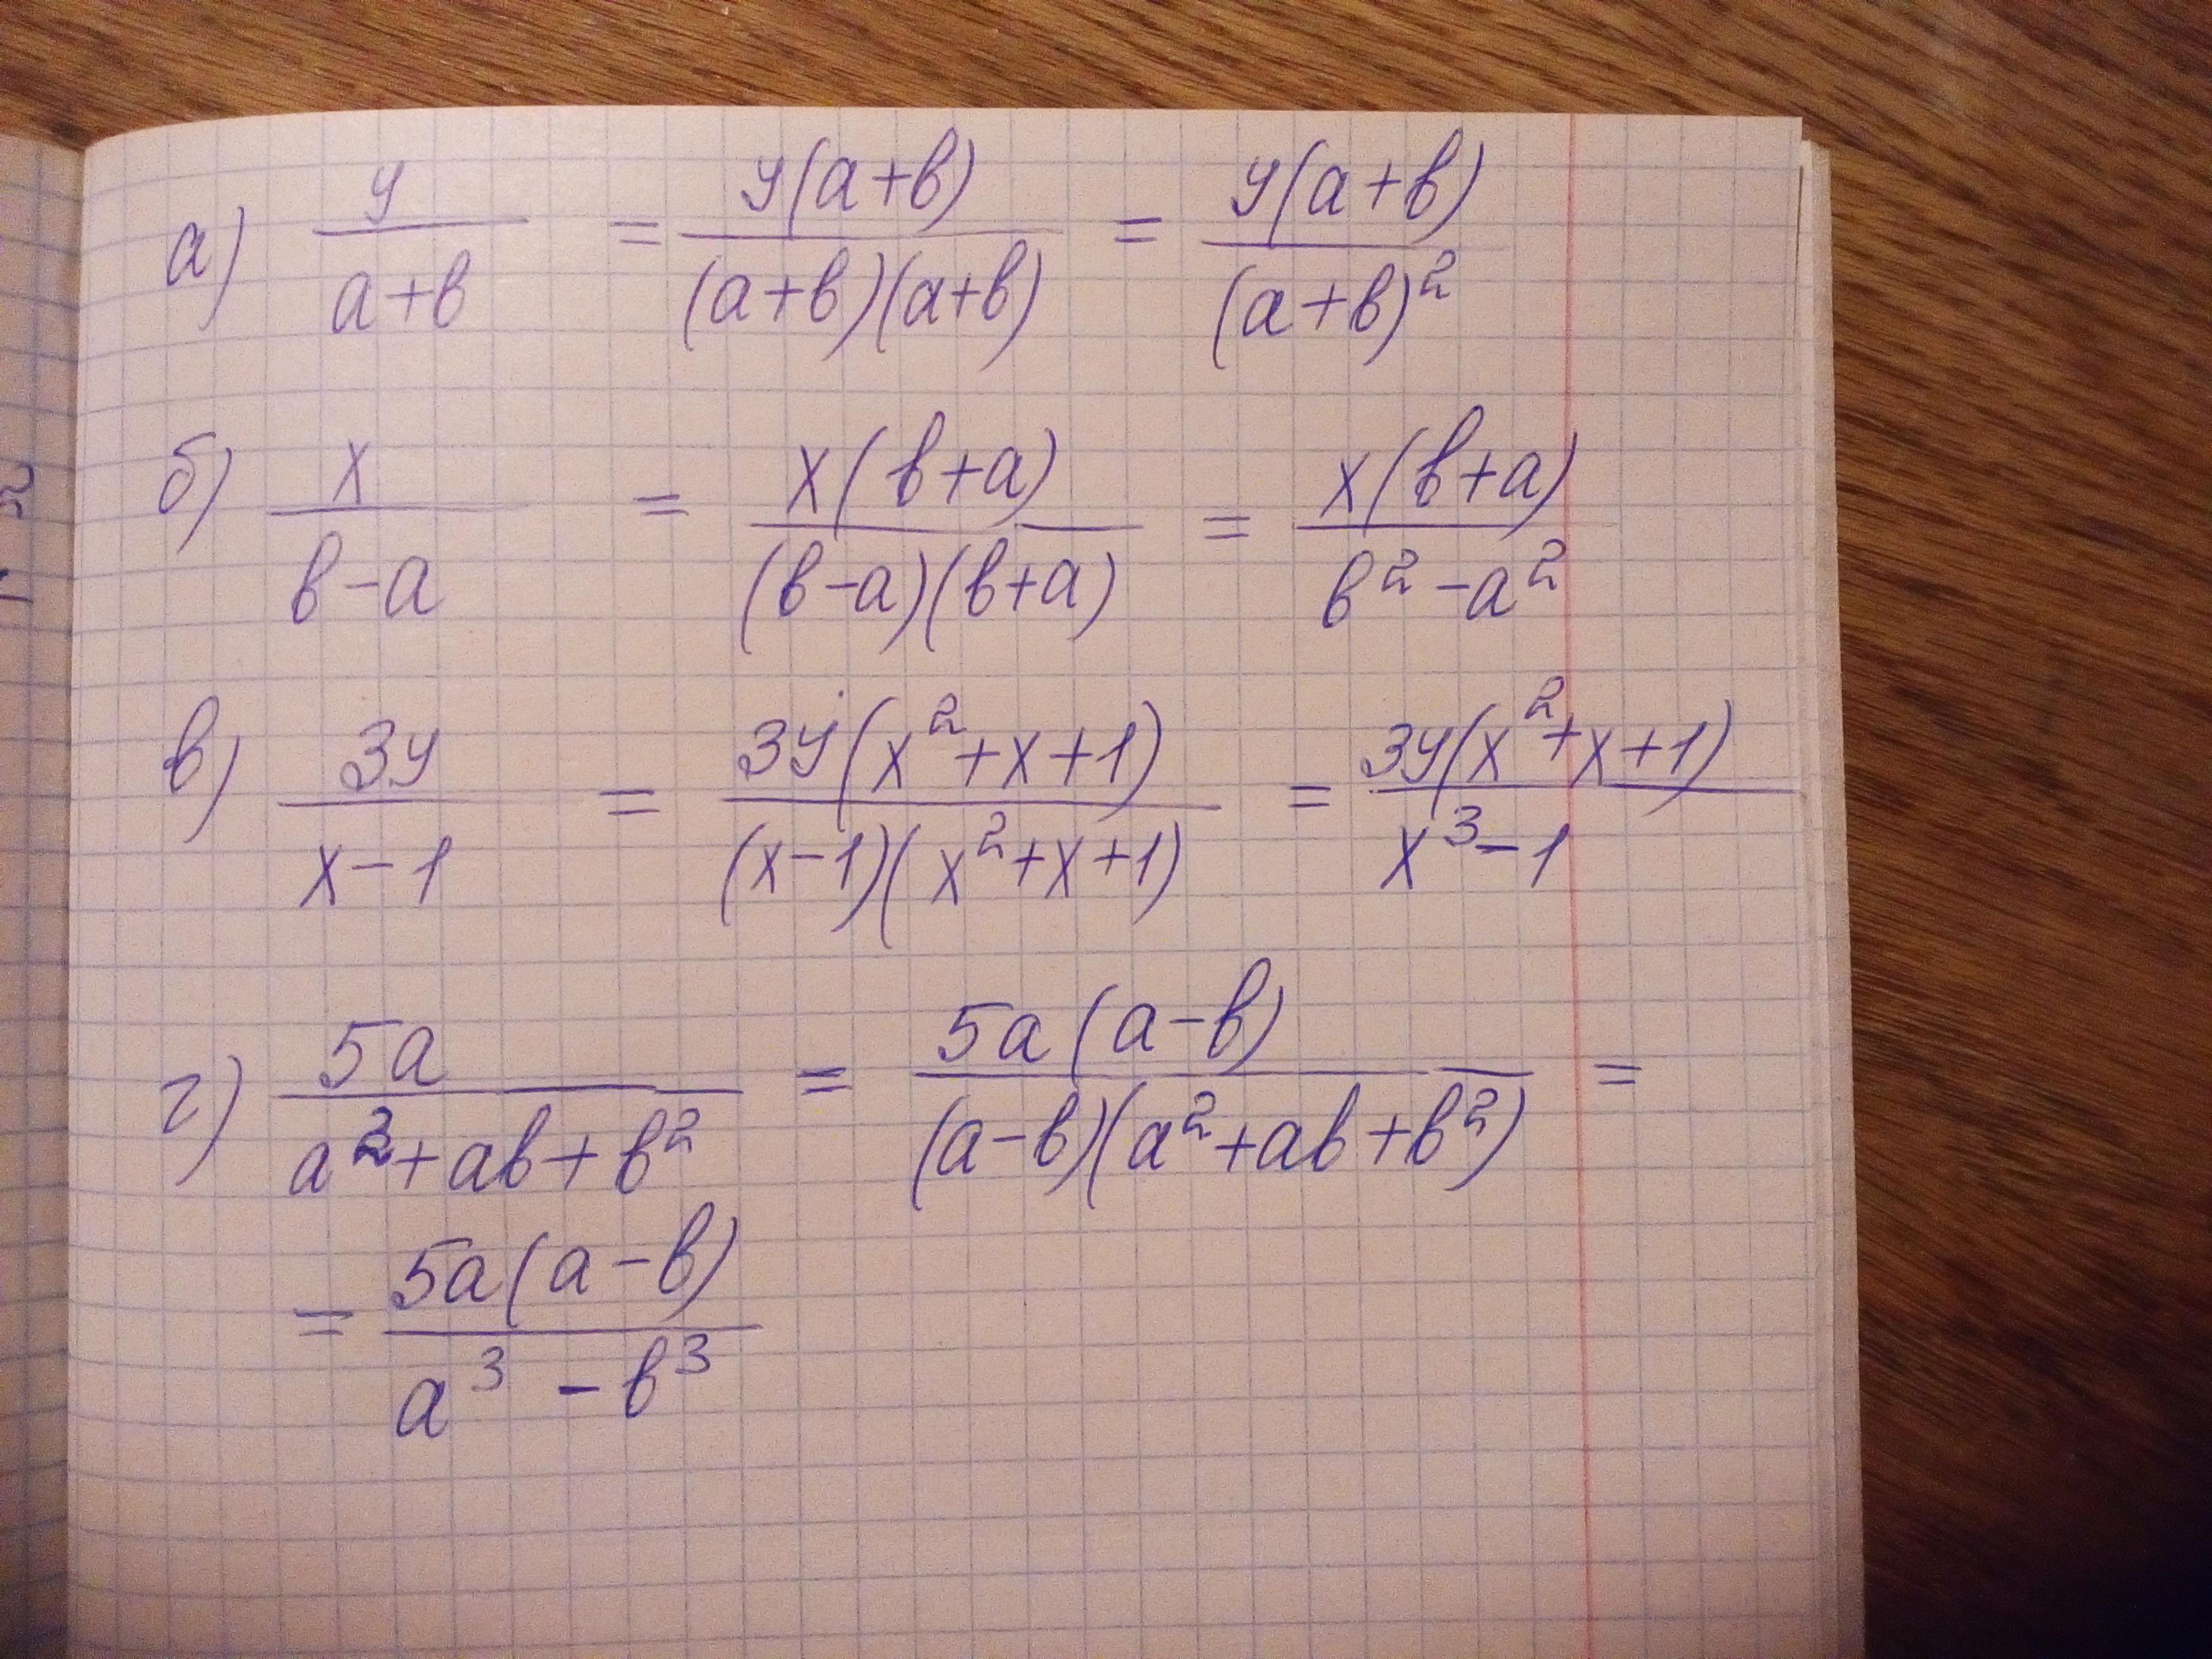 а) y/(a+b) = y(a+b)/((a+b)(a+b)) = y(a+b)/(a+b)²
б) x/(b-a) = x(b+a)/((b-a)(b+a)) = x(b+a)/(b²-a²)
в) 3y/(x-1) = 3y(x²+x+1)/((x-1)(x²+x+1)) = 3y(x²+x+1)/(x³-1)
г) 5a/(a²+ab+b²) = 5a(a-b)/((a-b)(a²+ab+b²)) =
= 5a(a-b)/(a³-b³)